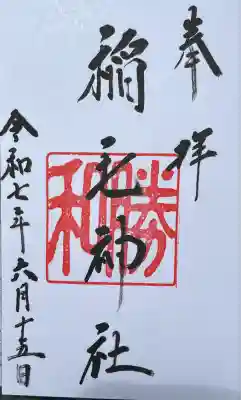 奉拝
稲毛神社
令和七年六月十五日
勝和